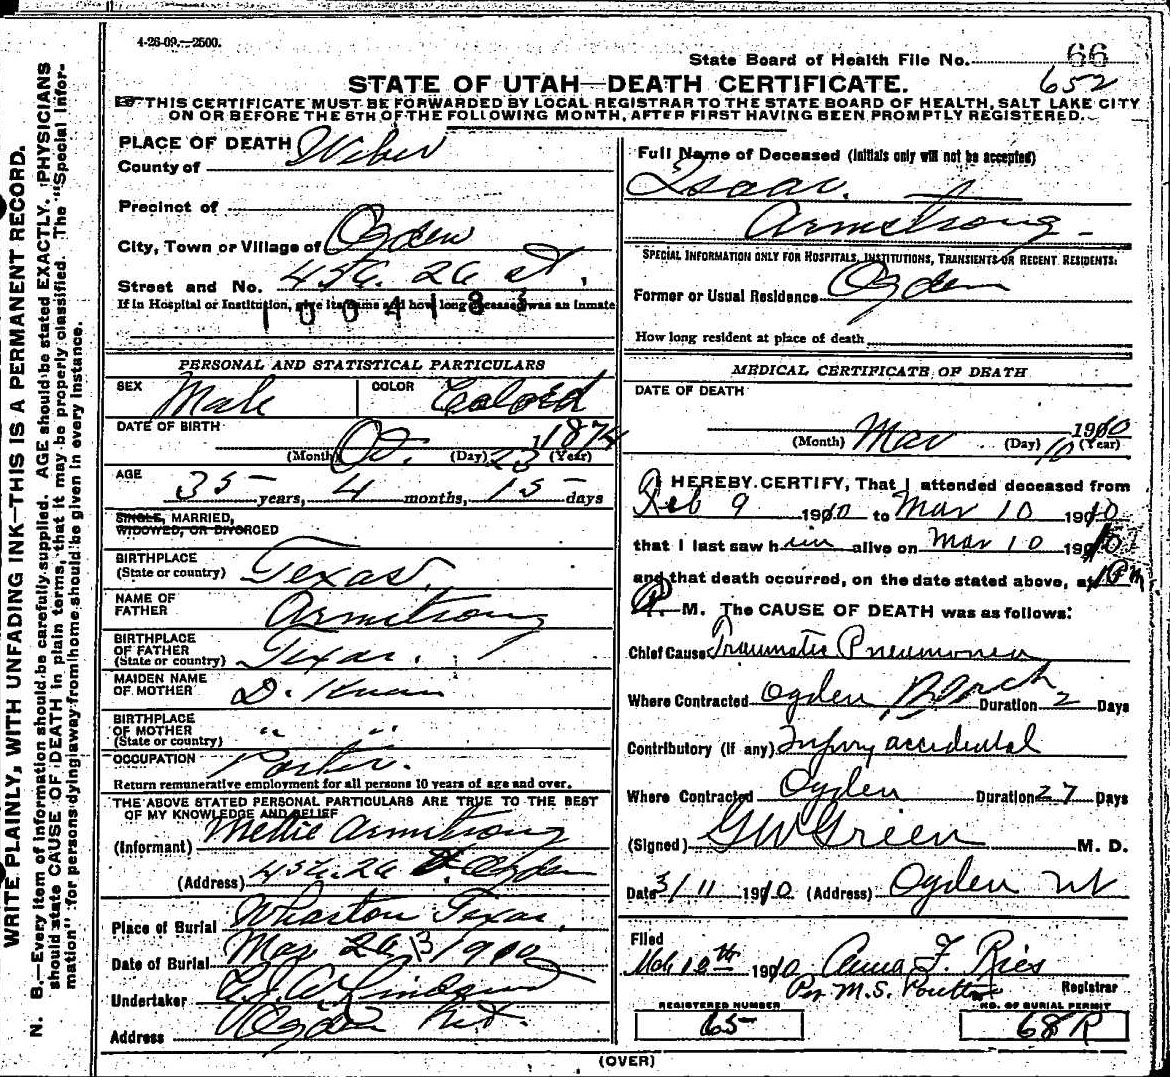 4-26-09.—2500.
State Board of Health File No. 66
652
STATE OF UTAH—DEATH CERTIFICATE.
THIS CERTIFICATE MUST BE FORWARDED BY LOCAL REGISTRAR TO THE STATE BOARD OF HEALTH, SALT LAKE CITY
ON OR BEFORE THE 5TH OF THE FOLLOWING MONTH, AFTER FIRST HAVING BEEN PROMPTLY REGISTERED.
WRITE PLAINLY, WITH UNFADING INK—THIS IS A PERMANENT RECORD.
N. B.—Every item of information should be carefully supplied. AGE should be stated EXACTLY. PHYSICIANS
should state CAUSE OF DEATH in plain terms, that it may be properly classified. The "Special Infor-
mation" for persons dying away from home should be given in every instance.
PLACE OF DEATH
County of Weber
Precinct of
City, Town or Village of Ogden
Street and No. 456. 26 st.
If in Hospital or Institution, give its name and how long deceased was an inmate
1004183
PERSONAL AND STATISTICAL PARTICULARS
SEX Male COLOR Colord
DATE OF BIRTH
(Month) Oc. (Day) 23 1874 (Year)
AGE
35 years, 4 months, 15 days
SINGLE, MARRIED,
WIDOWED, OR DIVORCED
BIRTHPLACE
(State or country) Texas
NAME OF
FATHER Armstrong
BIRTHPLACE
OF FATHER
(State or country) Texas.
MAIDEN NAME
OF MOTHER D. Know
BIRTHPLACE
OF MOTHER " "
(State or country)
OCCUPATION Porter.
Return remunerative employment for all persons 10 years of age and over.
THE ABOVE STATED PERSONAL PARTICULARS ARE TRUE TO THE BEST
OF MY KNOWLEDGE AND BELIEF
(Informant) Mettie Armstrong
(Address) 456. 26 st. Ogden
Place of Burial Wharton Texas.
Date of Burial Mar 13 1900
Undertaker Lindquist
Address Ogden Ut.
Full Name of Deceased (Initials only will not be accepted)
Isaac.
Armstrong
SPECIAL INFORMATION ONLY FOR HOSPITALS, INSTITUTIONS, TRANSIENTS OR RECENT RESIDENTS:
Former or Usual Residence Ogden
How long resident at place of death
MEDICAL CERTIFICATE OF DEATH
DATE OF DEATH
(Month) Mar (Day) 10 1910 (Year)
I HEREBY CERTIFY, That I attended deceased from
Feb 9 1910 to Mar 10 1910
that I last saw him alive on Mar 10 1910
and that death occurred, on the date stated above, at 1 P m
P. M. The CAUSE OF DEATH was as follows:
Chief Cause Traumatic Pneumonea
Where Contracted Ogden Duration 2 Days
Contributory (if any) Injury accidental
Where Contracted Ogden Duration 27 Days
(Signed) GW Green M. D.
Date 3/11 1910 (Address) Ogden Ut
Filed
Mch 12th 1910 Anna F. Ries
Per M.S. Poulton Registrar
REGISTERED NUMBER NO. OF BURIAL PERMIT
65 68 R
(OVER)